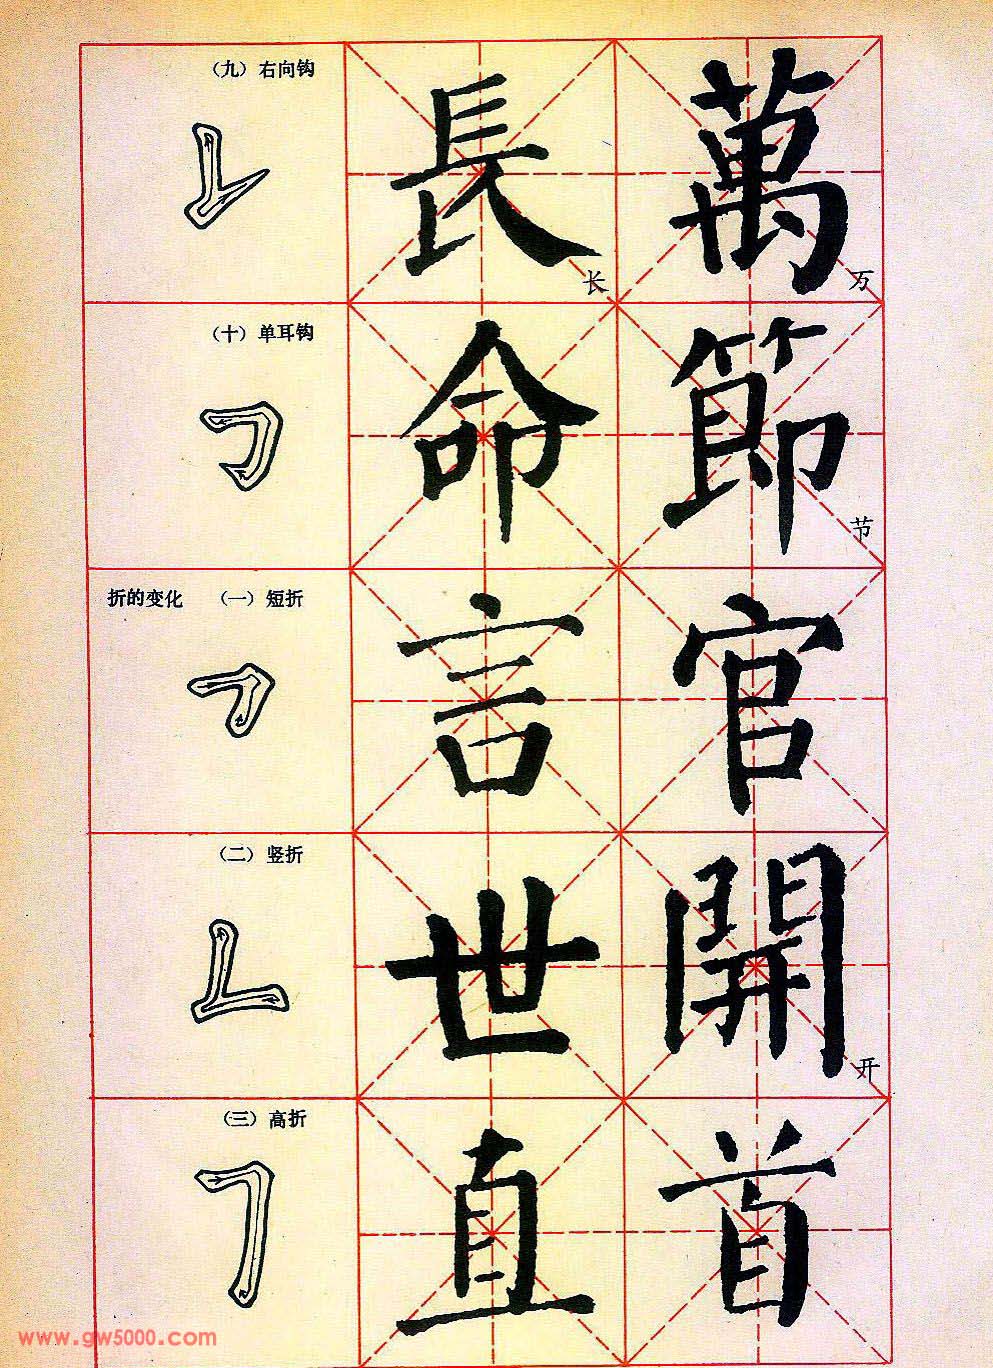 (九) 右向钩
長 长
萬 万
(十) 单耳钩
命
節 节
折的变化 (一) 短折
言
官
(二) 竖折
世
開 开
(三) 高折
直
首
www.gw5000.com